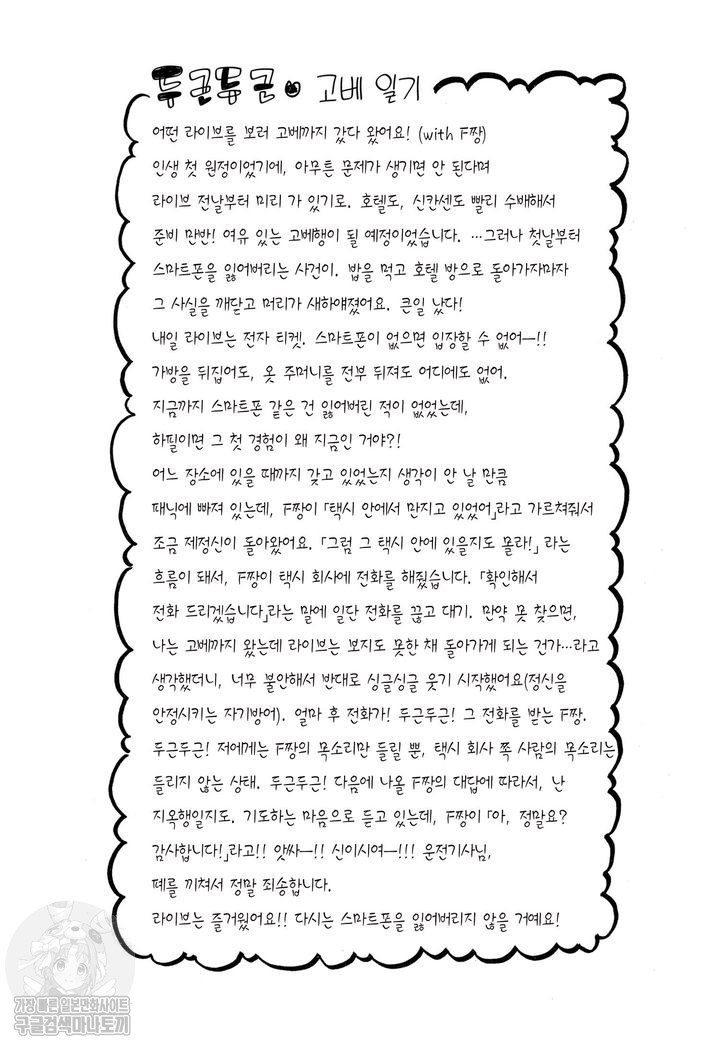 두근두근 고베 일기
어떤 라이브를 보러 고베까지 갔다 왔어요! (with F짱)
인생 첫 원정이었기에, 아무튼 문제가 생기면 안 된다며
라이브 전날부터 미리 가 있기로. 호텔도, 신칸센도 빨리 수배해서
준비 만반! 여유 있는 고베행이 될 예정이었습니다. …그러나 첫날부터
스마트폰을 잃어버리는 사건이. 밥을 먹고 호텔 방으로 돌아가자마자
그 사실을 깨닫고 머리가 새하얘졌어요. 큰일 났다!
내일 라이브는 전자 티켓. 스마트폰이 없으면 입장할 수 없어—!!
가방을 뒤집어도, 옷 주머니를 전부 뒤져도 어디에도 없어.
지금까지 스마트폰 같은 건 잃어버린 적이 없었는데,
하필이면 그 첫 경험이 왜 지금인 거야?!
어느 장소에 있을 때까지 갖고 있었는지 생각이 안 날 만큼
패닉에 빠져 있는데, F짱이 「택시 안에서 만지고 있었어」라고 가르쳐줘서
조금 제정신이 돌아왔어요. 「그럼 그 택시 안에 있을지도 몰라!」 라는
흐름이 돼서, F짱이 택시 회사에 전화를 해줬습니다. 「확인해서
전화 드리겠습니다」라는 말에 일단 전화를 끊고 대기. 만약 못 찾으면,
나는 고베까지 왔는데 라이브는 보지도 못한 채 돌아가게 되는 건가…라고
생각했더니, 너무 불안해서 반대로 싱글싱글 웃기 시작했어요(정신을
안정시키는 자기방어). 얼마 후 전화가! 두근두근! 그 전화를 받는 F짱.
두근두근! 저에게는 F짱의 목소리만 들릴 뿐, 택시 회사 쪽 사람의 목소리는
들리지 않는 상태. 두근두근! 다음에 나올 F짱의 대답에 따라서, 난
지옥행일지도. 기도하는 마음으로 듣고 있는데, F짱이 「아, 정말요?
감사합니다!」라고!! 앗싸—!! 신이시여—!!! 운전기사님,
폐를 끼쳐서 정말 죄송합니다.
라이브는 즐거웠어요!! 다시는 스마트폰을 잃어버리지 않을 거예요!
가장 빠른 일본만화사이트
구글검색마나토끼